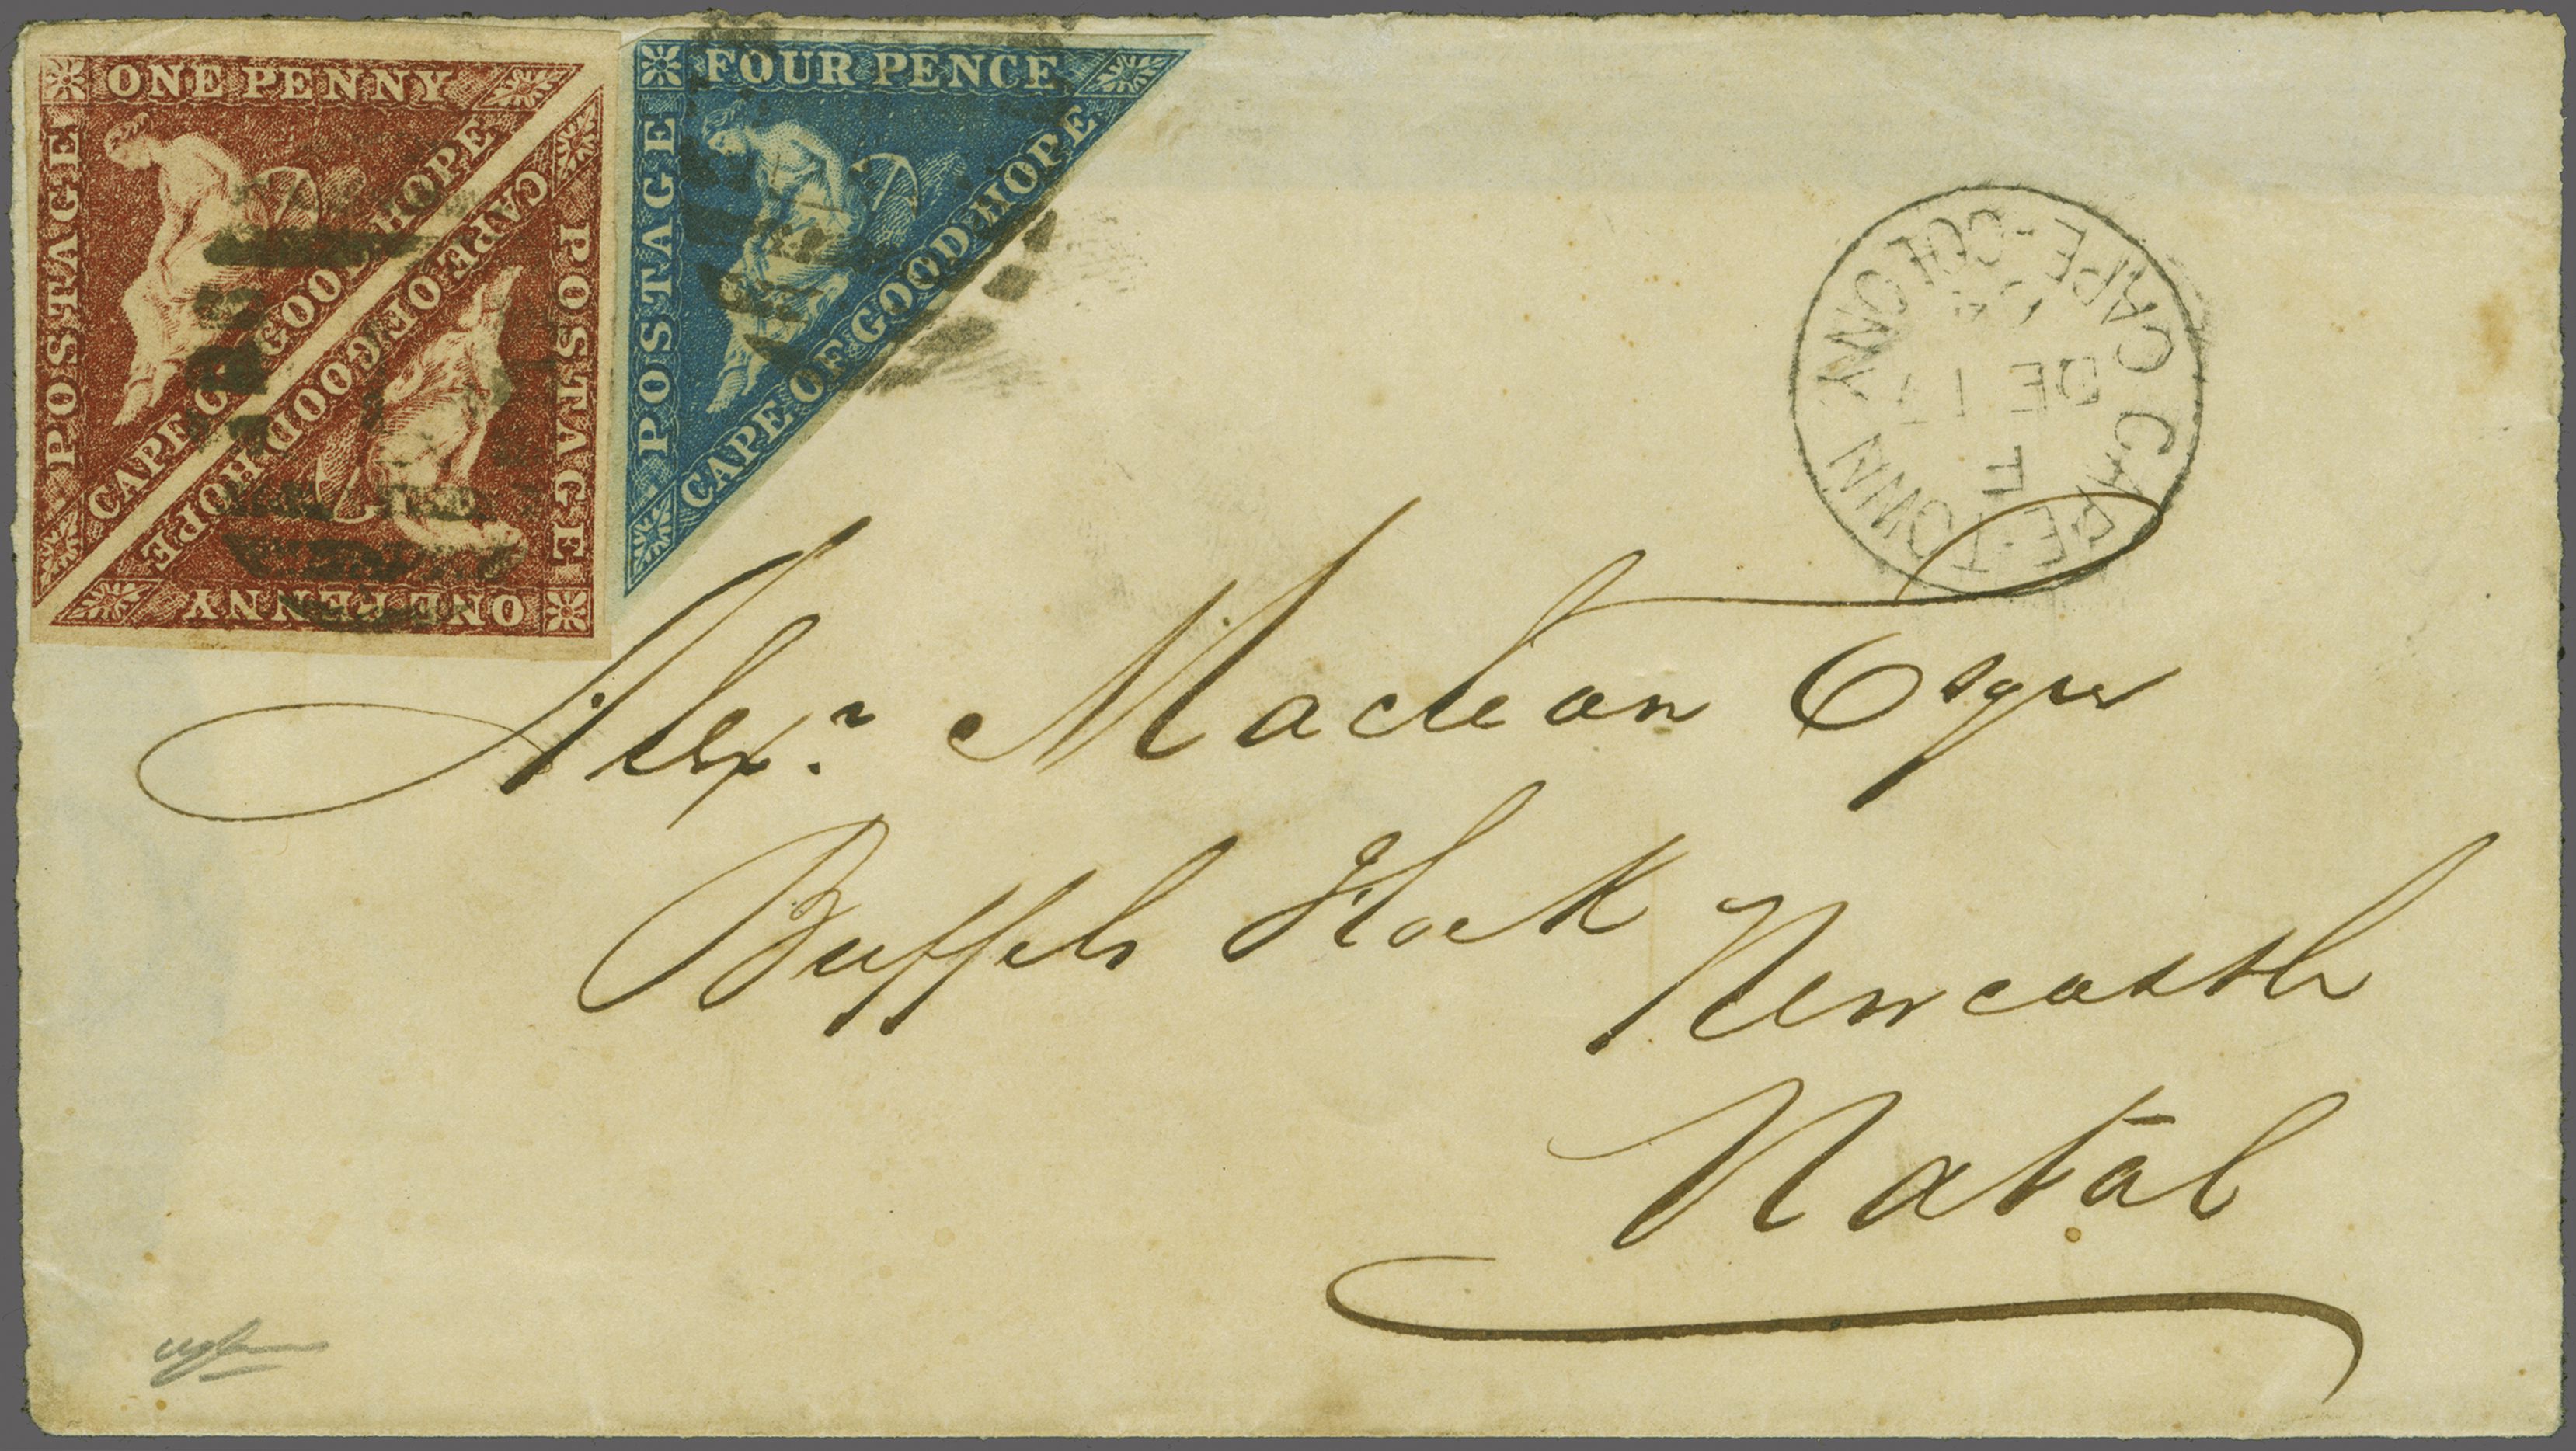 ONE PENNY
POSTAGE
CAPE OF GOOD HOPE
CAPE OF GOOD HOPE
POSTAGE
ONE PENNY
FOUR PENCE
POSTAGE
CAPE OF GOOD HOPE
CAPE-TOWN
CAPE-COLONY
DE
Alexr. Maclean Esqre
Buffels Hoek
Newcastle
Natal